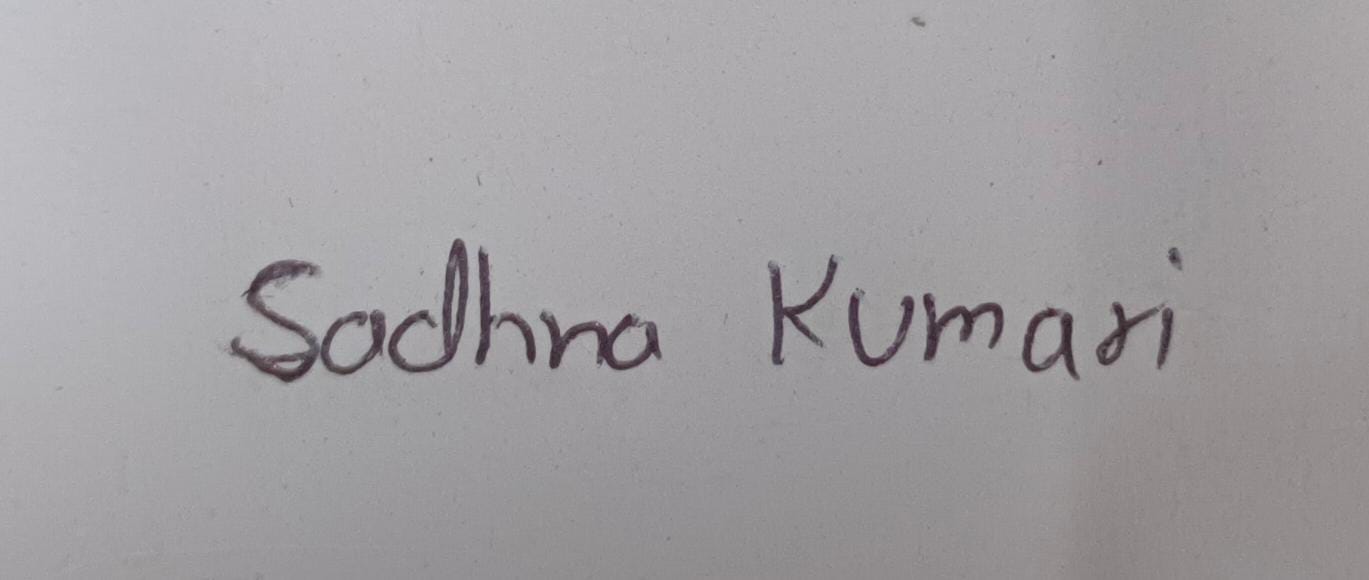 Sadhna Kumari